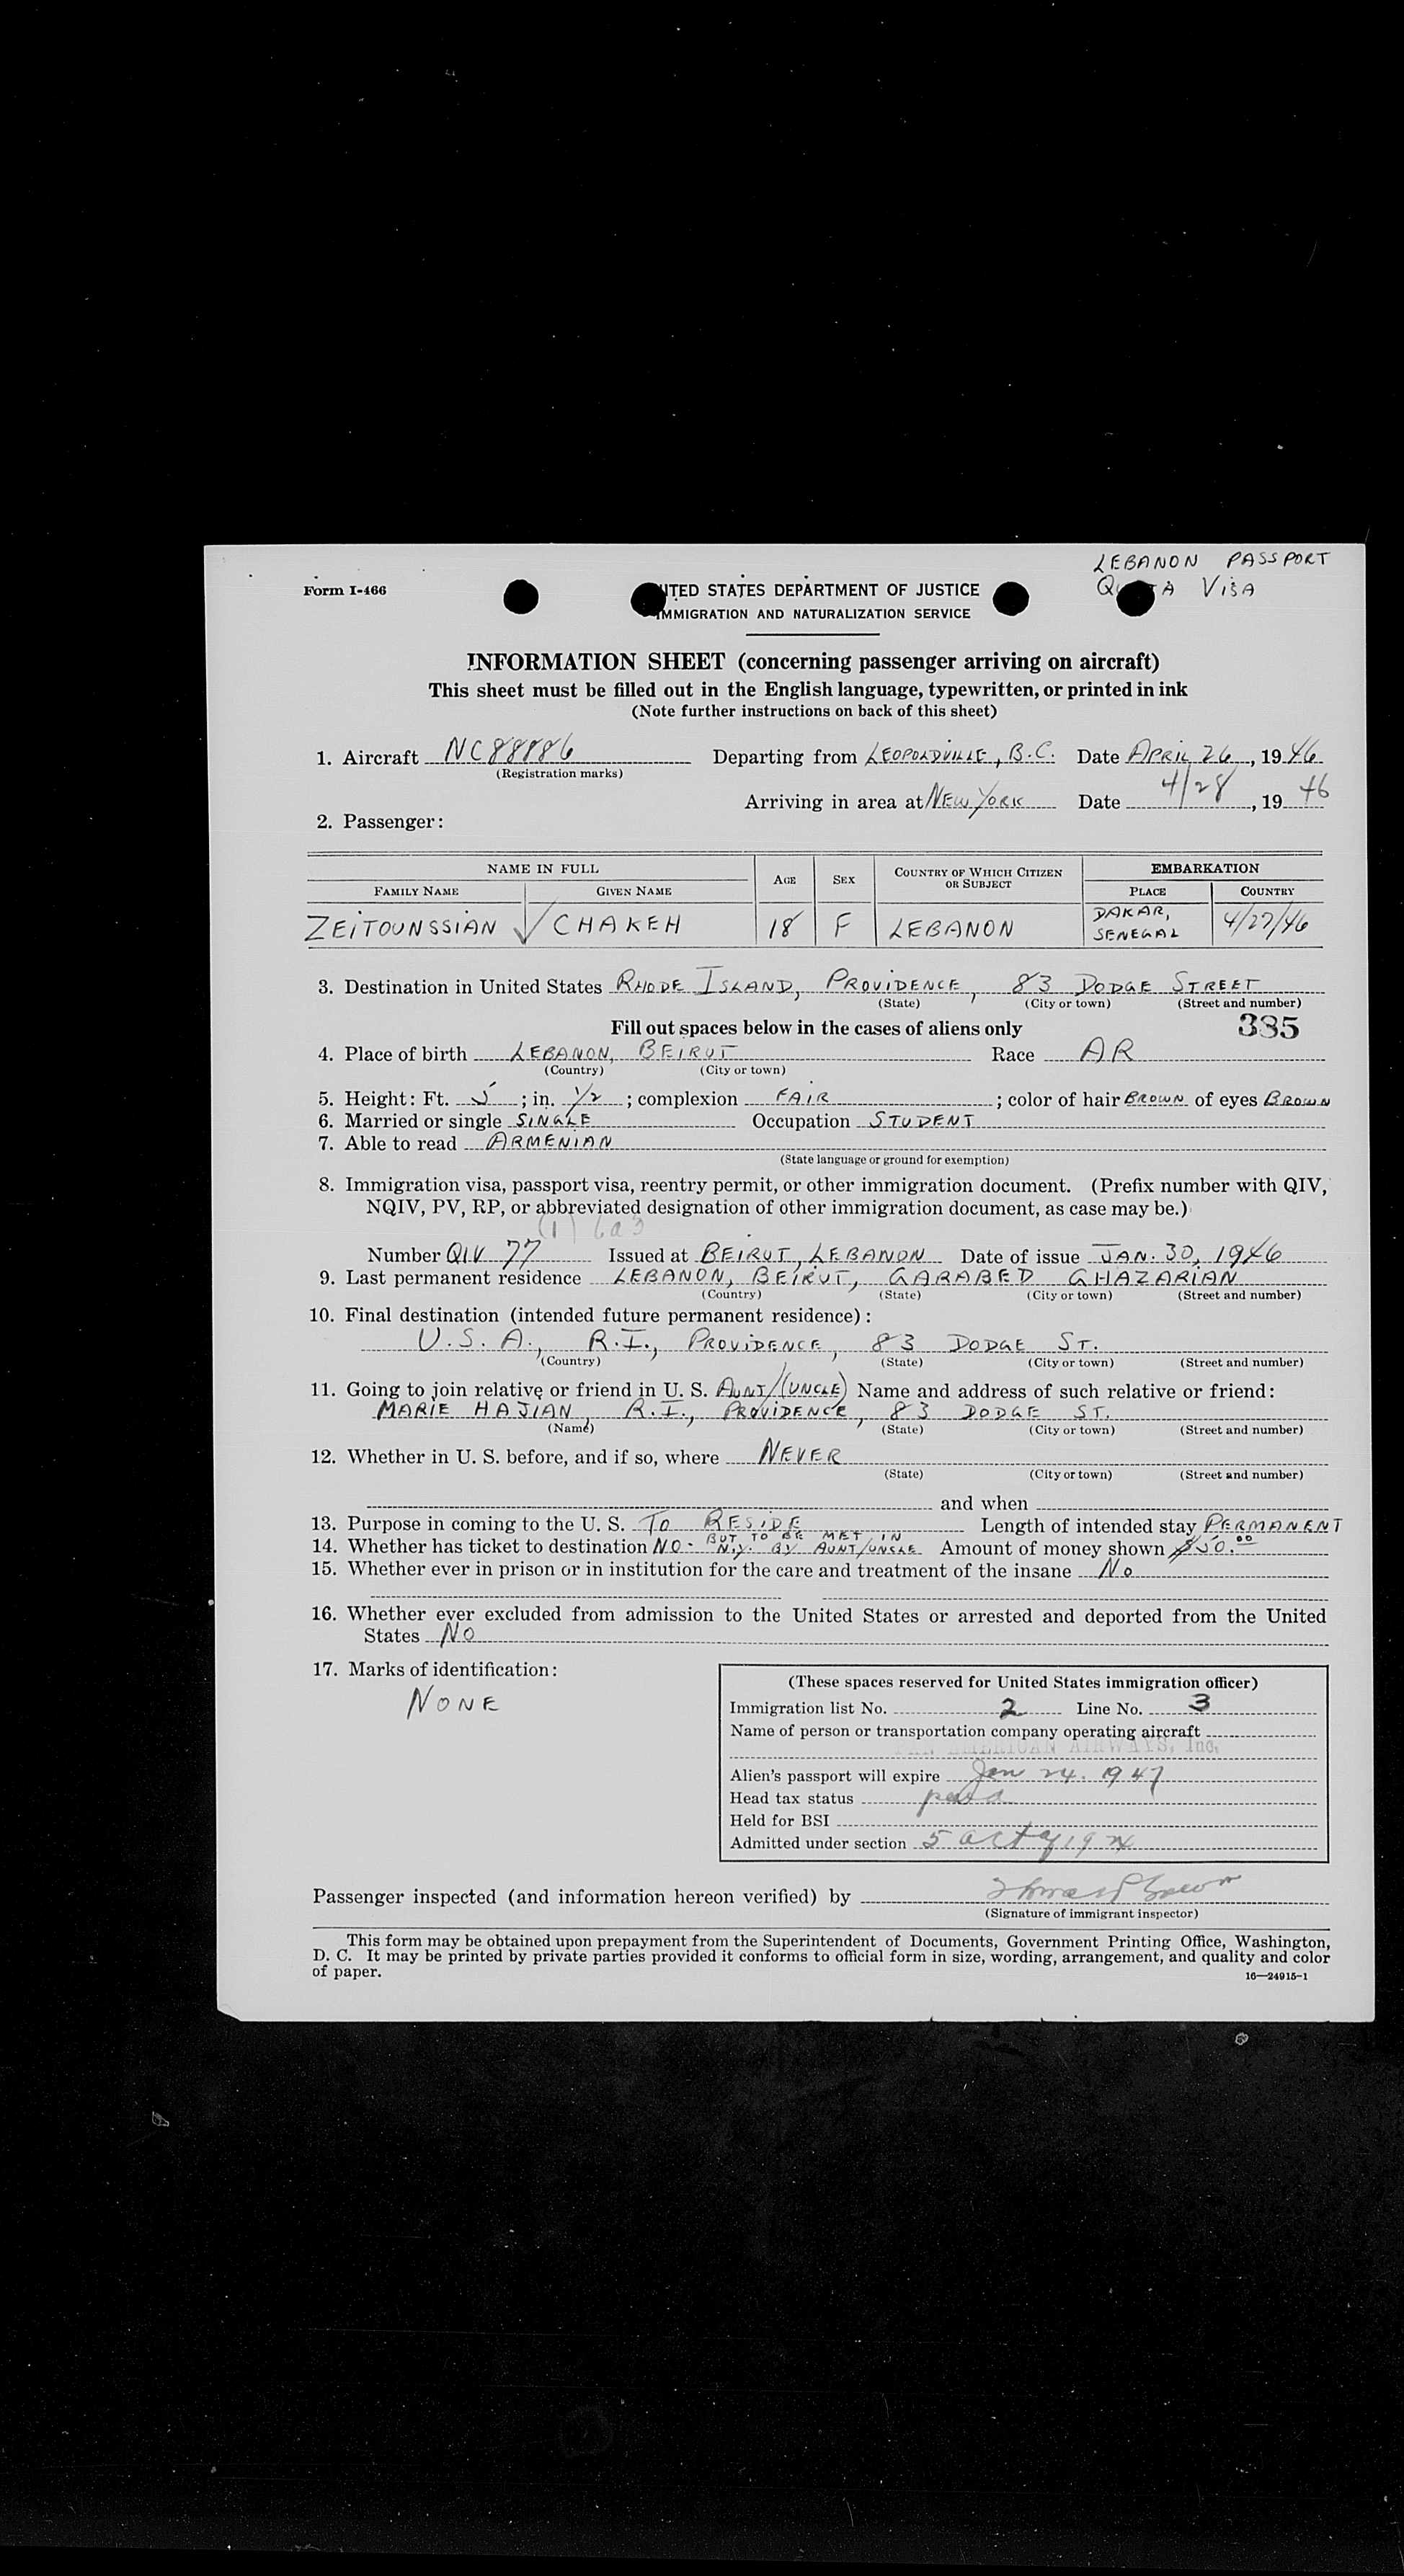 LEBANON PASSPORT
Form I-466
UNITED STATES DEPARTMENT OF JUSTICE
QUOTA VISA
IMMIGRATION AND NATURALIZATION SERVICE
INFORMATION SHEET (concerning passenger arriving on aircraft)
This sheet must be filled out in the English language, typewritten, or printed in ink
(Note further instructions on back of this sheet)
1. Aircraft NC88886 Departing from LEOPOLDVILLE, B.C. Date APRIL 26, 1946
(Registration marks)
Arriving in area at NEW YORK Date 4/28, 1946
2. Passenger:
NAME IN FULL AGE SEX COUNTRY OF WHICH CITIZEN OR SUBJECT EMBARKATION
FAMILY NAME GIVEN NAME PLACE COUNTRY
ZEITOUNSSIAN ✓ CHAKEH 18 F LEBANON DAKAR, SENEGAL 4/27/46
3. Destination in United States RHODE ISLAND, PROVIDENCE, 83 DODGE STREET
(State) (City or town) (Street and number)
Fill out spaces below in the cases of aliens only 385
4. Place of birth LEBANON, BEIRUT Race AR
(Country) (City or town)
5. Height: Ft. 5; in. 1/2; complexion FAIR; color of hair BROWN of eyes BROWN
6. Married or single SINGLE Occupation STUDENT
7. Able to read ARMENIAN
(State language or ground for exemption)
8. Immigration visa, passport visa, reentry permit, or other immigration document. (Prefix number with QIV,
NQIV, PV, RP, or abbreviated designation of other immigration document, as case may be.)
(1) 6a3
Number QIV 77 Issued at BEIRUT, LEBANON Date of issue JAN. 30, 1946
9. Last permanent residence LEBANON, BEIRUT, GARABED GHAZARIAN
(Country) (State) (City or town) (Street and number)
10. Final destination (intended future permanent residence):
U.S.A., R.I., PROVIDENCE, 83 DODGE ST.
(Country) (State) (City or town) (Street and number)
11. Going to join relative or friend in U. S. AUNT/(UNCLE) Name and address of such relative or friend:
MARIE HAJIAN, R.I., PROVIDENCE, 83 DODGE ST.
(Name) (State) (City or town) (Street and number)
12. Whether in U. S. before, and if so, where NEVER
(State) (City or town) (Street and number)
and when
13. Purpose in coming to the U. S. TO RESIDE Length of intended stay PERMANENT
14. Whether has ticket to destination NO - BUT TO BE MET IN N.Y. BY AUNT/UNCLE Amount of money shown $50.00
15. Whether ever in prison or in institution for the care and treatment of the insane No
16. Whether ever excluded from admission to the United States or arrested and deported from the United
States NO
17. Marks of identification:
NONE
(These spaces reserved for United States immigration officer)
Immigration list No. 2 Line No. 3
Name of person or transportation company operating aircraft
PAN AMERICAN AIRWAYS, Inc.
Alien's passport will expire Jan 24. 1947
Head tax status paid
Held for BSI
Admitted under section 5 act of 1924
Passenger inspected (and information hereon verified) by
(Signature of immigrant inspector)
This form may be obtained upon prepayment from the Superintendent of Documents, Government Printing Office, Washington,
D. C. It may be printed by private parties provided it conforms to official form in size, wording, arrangement, and quality and color
of paper.
16—24915-1